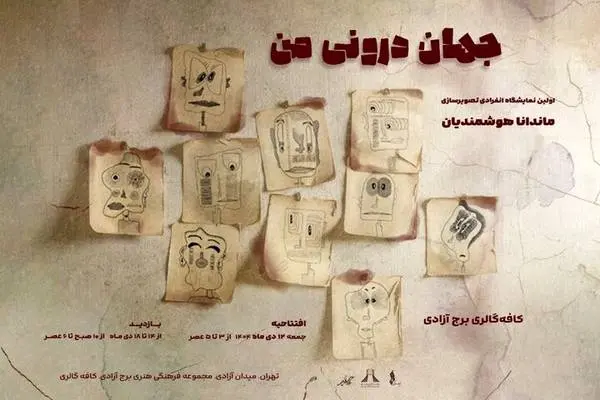 جهان درونی من
اولین نمایشگاه انفرادی تصویرسازی
ماندانا هوشمندیان
کافه‌گالری برج آزادی
افتتاحیه
جمعه ۱۲ دی ماه ۱۴۰۴ از ۳ تا ۵ عصر
بازدید
از ۱۴ تا ۱۸ دی ماه از ۱۰ صبح تا ۶ عصر
تهران، میدان آزادی، مجموعه فرهنگی هنری برج آزادی، کافه گالری